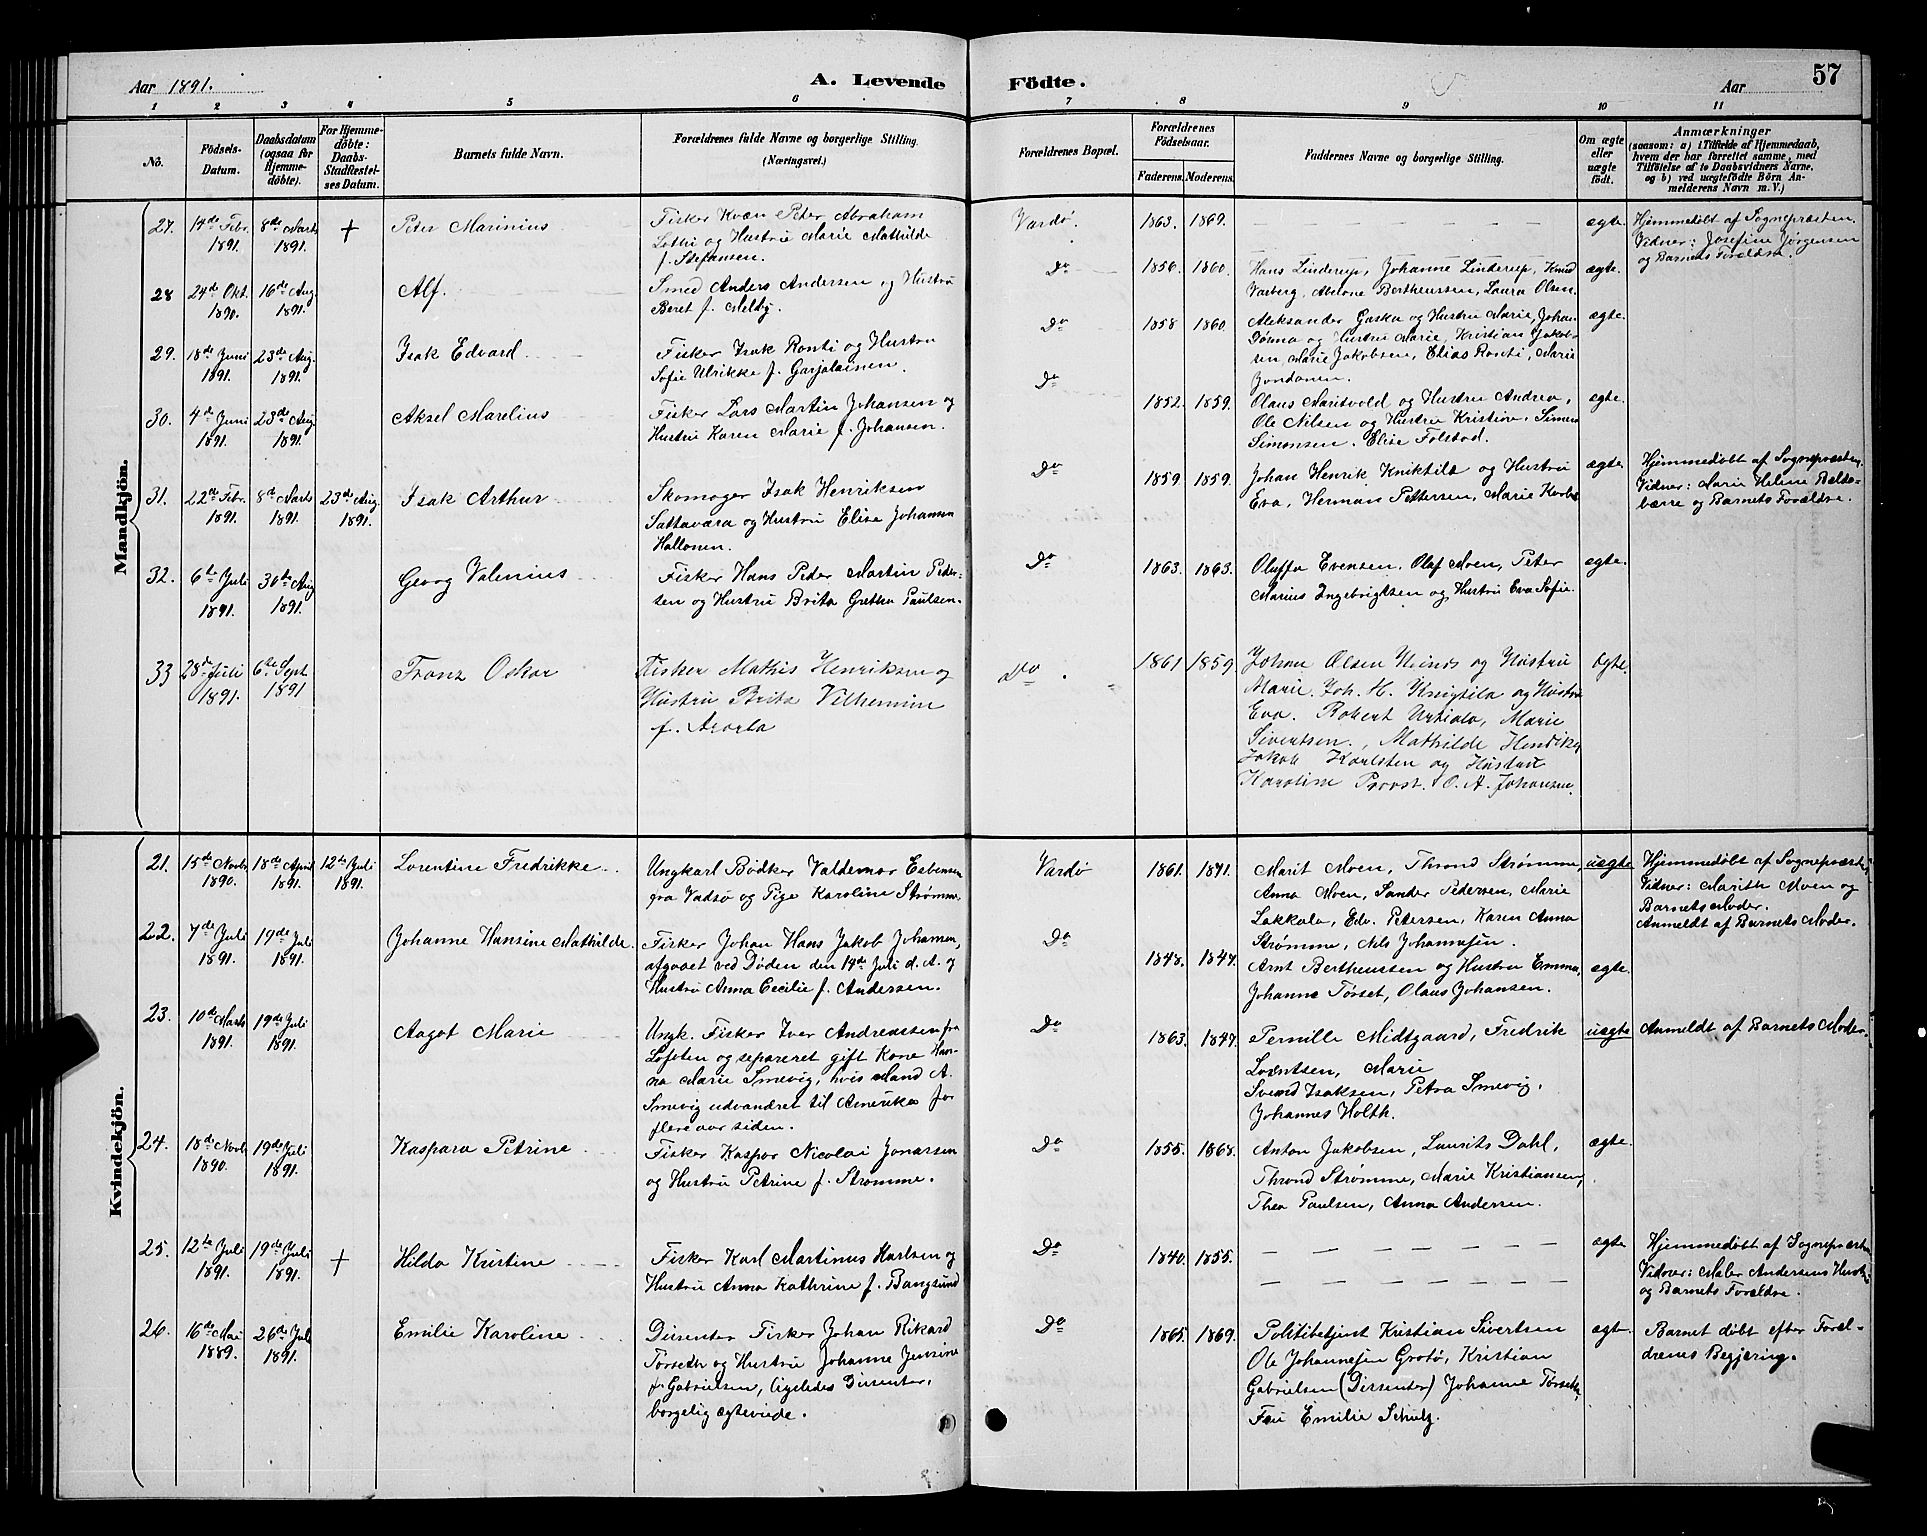 Aar 1891.
A. Levende
Födte.
Aar
57
1 2 3 4 5 6 7 8 9 10 11
No.
Födsels-
Datum.
Daabsdatum
(ogsaa for
Hjemme-
döbte).
For Hjemme-
döbte:
Daabs-
Stadfæstel-
ses Datum.
Barnets fulde Navn.
Forældrenes fulde Navne og borgerlige Stilling.
(Næringsvei.)
Forældrenes Bopæl.
Forældrenes
Födselsaar.
Faderens. Moderens.
Faddernes Navne og borgerlige Stilling.
Om ægte
eller
uægte
födt.
Anmærkninger
(saasom: a) i Tilfælde af Hjemmedaab,
hvem der har forrettet samme, med
Tilföielse af to Daabsvidners Navne,
og b) ved uægtefödte Börn An-
melderens Navn m. V.)
Mandkjön.
27.
14de Febr.
1891.
8de Marts
1891.
+
Peter Marinius
Fisker Kvæn Peter Abraham
Lothi og Hustru Marie Mathilde
f. Stefansen.
Vardö.
1863. 1869.
ægte.
Hjemmedøbt af Sognepræsten.
Vidner: Josefine Jørgensen
og Barnets Forældre.
28
24de Okt.
1890.
16de Aug.
1891.
Alf.
Smed Anders Andersen og Hustru
Beret f. Melby.
Do
1856. 1860.
Hans Linderup, Johanne Linderup, Knud
Varberg, Abelone Bertheussen, Laura Olsen.
ægte.
29.
18de Juni
1891.
23de Aug.
1891.
Isak Edvard
Fisker Isak Ronti og Hustru
Sofie Ulrikke f. Garjalainen.
Do
1858 1860.
Aleksander Gaska og Hustru Marie, Johan
og Hustru Marie, Kristian Jakob-
sen, Marie Jakobsen, Elias Ronti, Marie
ægte.
30.
4de Juni
1891.
23de Aug
1891.
Aksel Marelius
Fisker Lars Martin Johansen og
Hustru Karen Marie f. Johansen.
Do
1852. 1859.
Olaus Maritvold og Hustru Andrea,
Ole Nilsen og Hustru Kristine, Simon
Simonsen, Elise Folstad.
ægte.
31.
22de Febr.
1891.
8de Marts
1891.
23de Aug.
1891.
Isak Arthur
Skomager Isak Henriksen
Sattavara og Hustru Elise Johansen
Hallonen.
Do
1859. 1859.
Johan Henrik Kniktila og Hustru
Eva, Herman Pettersen, Marie
ægte.
Hjemmedøbt af Sognepræsten.
Vidner: Marie Helene
og Barnets Forældre.
32.
6te Juli
1891.
30te Aug
1891.
Georg Valenius
Fisker Hans Peder Martin Peder-
sen og Hustru Brita Gretha Paulsen.
Do
1863. 1863.
Oluffa Evensen, Olaf Moen, Peter
Marius Ingebrigtsen og Hustru Eva Sofie.
ægte.
33
28de Juli
1891.
6te Sept
1891
Franz Oskar
Fisker Mathis Henriksen og
Hustru Brita Vilhemine
f.
Do
1861 1859.
Johan Olsen og Hustru
Marie. Joh. H. Knigtila og Hustru
Eva. Robert, Marie
Sivertsen., Mathilde
Jakob Karlsten og Hustru
Karoline Provst. O. A. Johansen.
Ægte.
Kvindekjön.
21.
15de Novbr
1890.
18de April
1891.
12te Juli
1891.
Lorentine Fredrikke
Ungkarl Bødker Valdemar Esbensen
fra Vadsø og Pige Karoline Strømme.
Vardö
1861. 1841.
Marit Moen, Thrond Strømme,
Anna Moen, Sander Pedersen, Marie
Lakkala, Edv. Petersen, Karen Anna
Strømme, Nils Johannesen.
uægte
Hjemmedøbt af Sognepræsten,
Vidner: Marith Moen og
Barnets Moder.
Anmeldt af Barnets Moder.
22.
7de Juli
1891.
19de Juli
1891.
Johanne Hansine Mathilde.
Fisker Johan Hans Jakob Johansen,
afgaaet ved Døden den 14de Juli d. A. og
Hustru Anna Cecilie f. Andersen.
Do
1848. 1847.
Arnt Bertheussen og Hustru Emma,
Johanne Tørset, Olaus Johansen.
ægte.
23.
10de Marts
1891.
19de Juli
1891.
Aagot Marie
Ungk. Fisker Iver Andreassen fra
Lofoten og separeret gift Kone Han-
na Marie Smevig, hvis Mand A.
Smevig udvandret til Amerika for
flere aar siden.
Do
1863. 1847.
Pernille Midtgaard, Fredrik
Lorentsen, Marie
Isaksen, Petra Smevig,
Johannes Holth.
uægte
Anmeldt af Barnets Moder.
24.
18de Novb
1890.
19de Juli
1891.
Kaspara Petrine
Fisker Kaspar Nicolai Jonassen
og Hustru Petrine f. Strømme.
Do
1855. 1868.
Anton Jakobsen, Laurits Dahl,
Thrond Strømme, Marie Kristiansen,
Thea Paulsen, Anna Andersen.
ægte.
25.
12te Juli
1891.
19de Juli
1891.
+
Hilda Kristine
Fisker Karl Martinus Karlsen og
Hustru Anna Kathrine f. Bangsund
Do
1840. 1855.
ægte
Hjemmedøbt af Sognepræsten
Vidner: Maler Andersens Hustru
og Barnets Forældre.
26.
16de Mai
1889.
26de Juli
1891.
Emilie Karoline
Dissenter Fisker Johan Rikard
Torseth og Hustru Johanne Jensine
f. Gabrielsen, ligeledes Dissenter,
borgelig ægteviede.
Do
1865. 1869.
Politibetjent Kristian Sivertsen
Ole Johannesen Grotø, Kristian
Gabrielsen (Dissenter) Johanne Torseth,
Fru Emilie Schulz.
ægte.
Barnet døbt efter Foræl-
drenes Begjæring.